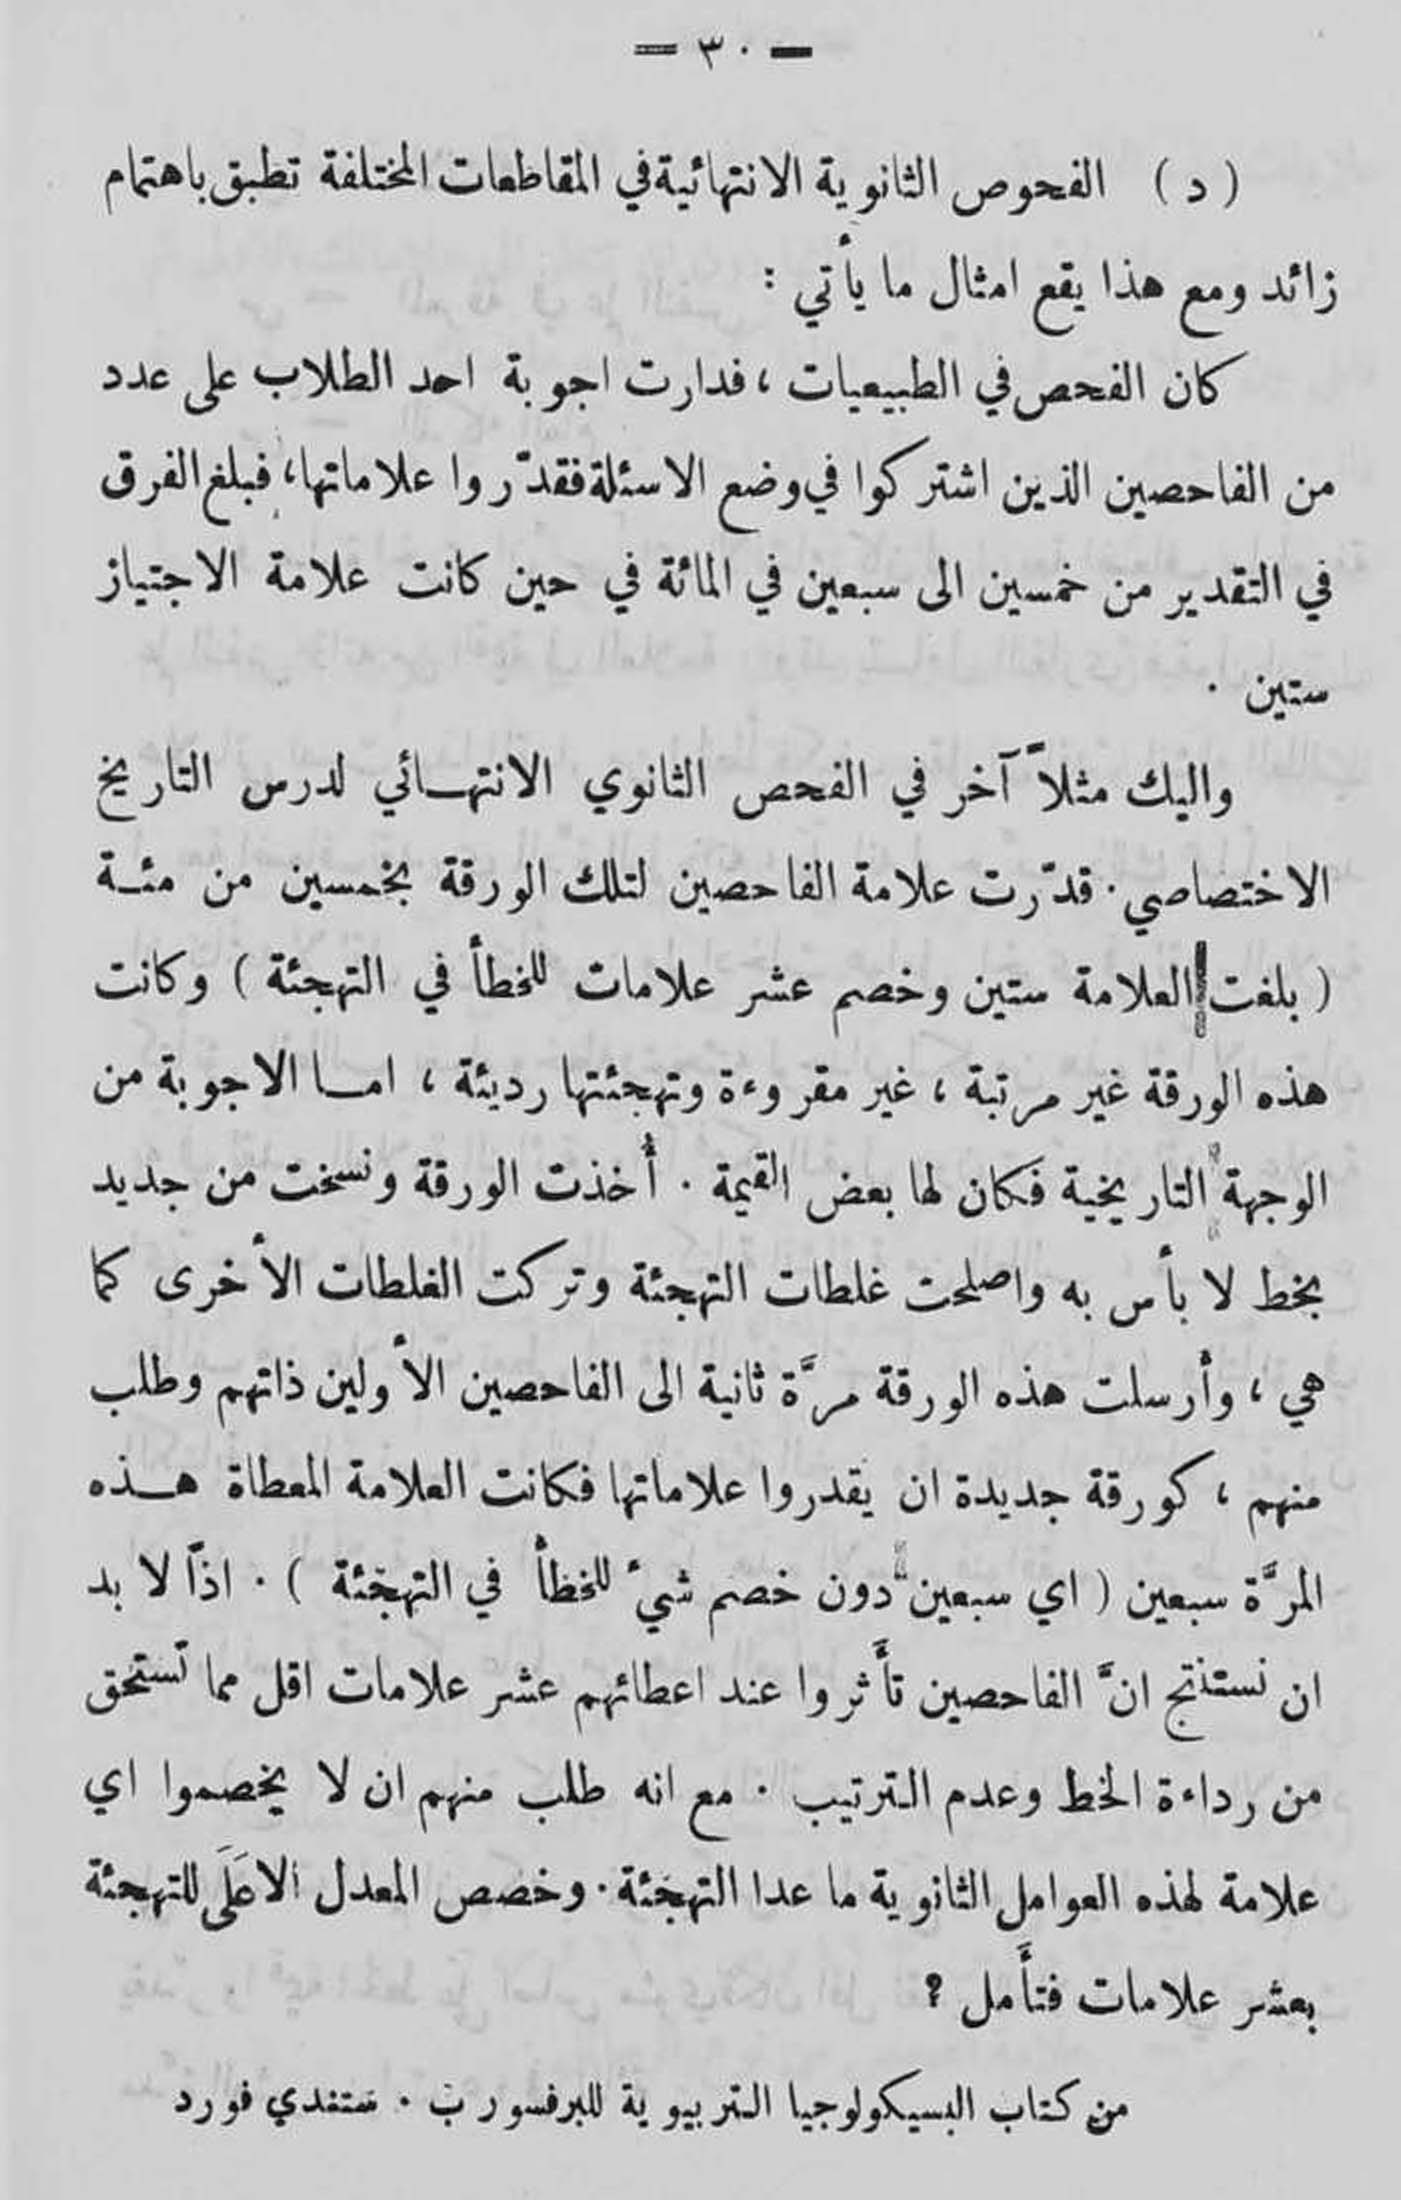 — ٣٠ —
( د ) الفحوص الثانوية الانتهائية في المقاطعات المختلفة تطبق باهتمام
زائد ومع هذا يقع امثال ما يأتي :
كان الفحص في الطبيعيات ، فدارت اجوبة احد الطلاب على عدد
من الفاحصين الذين اشتركوا في وضع الاسئلة فقدّروا علاماتها ، فبلغ الفرق
في التقدير من خمسين الى سبعين في المائة في حين كانت علامة الاجتياز
ستين .
واليك مثلاً آخر في الفحص الثانوي الانتهائي لدرس التاريخ
الاختصاصي . قدّرت علامة الفاحصين لتلك الورقة بخمسين من مئة
( بلغت العلامة ستين وخصم عشر علامات للخطأ في التهجئة ) وكانت
هذه الورقة غير مرتبة ، غير مقروءة وتهجئتها رديئة ، اما الاجوبة من
الوجهة التاريخية فكان لها بعض القيمة . أُخذت الورقة ونسخت من جديد
بخط لا بأس به واصلحت غلطات التهجئة وتركت الغلطات الأخرى كما
هي ، وأرسلت هذه الورقة مرَّة ثانية الى الفاحصين الأولين ذاتهم وطلب
منهم ، كورقة جديدة ان يقدروا علاماتها فكانت العلامة المعطاة هذه
المرَّة سبعين ( اي سبعين دون خصم شيءٍ للخطأ في التهجئة ) . اذاً لا بد
ان نستنتج انَّ الفاحصين تأَثروا عند اعطائهم عشر علامات اقل مما تستحق
من رداءة الخط وعدم الترتيب . مع انه طلب منهم ان لا يخصموا اي
علامة لهذه العوامل الثانوية ما عدا التهجئة . وخصص المعدل الاعَلَى للتهجئة
بعشر علامات فتأَمل ؟
من كتاب البسيكولوجيا التربيوية للبرفسور ب . ستندي فورد